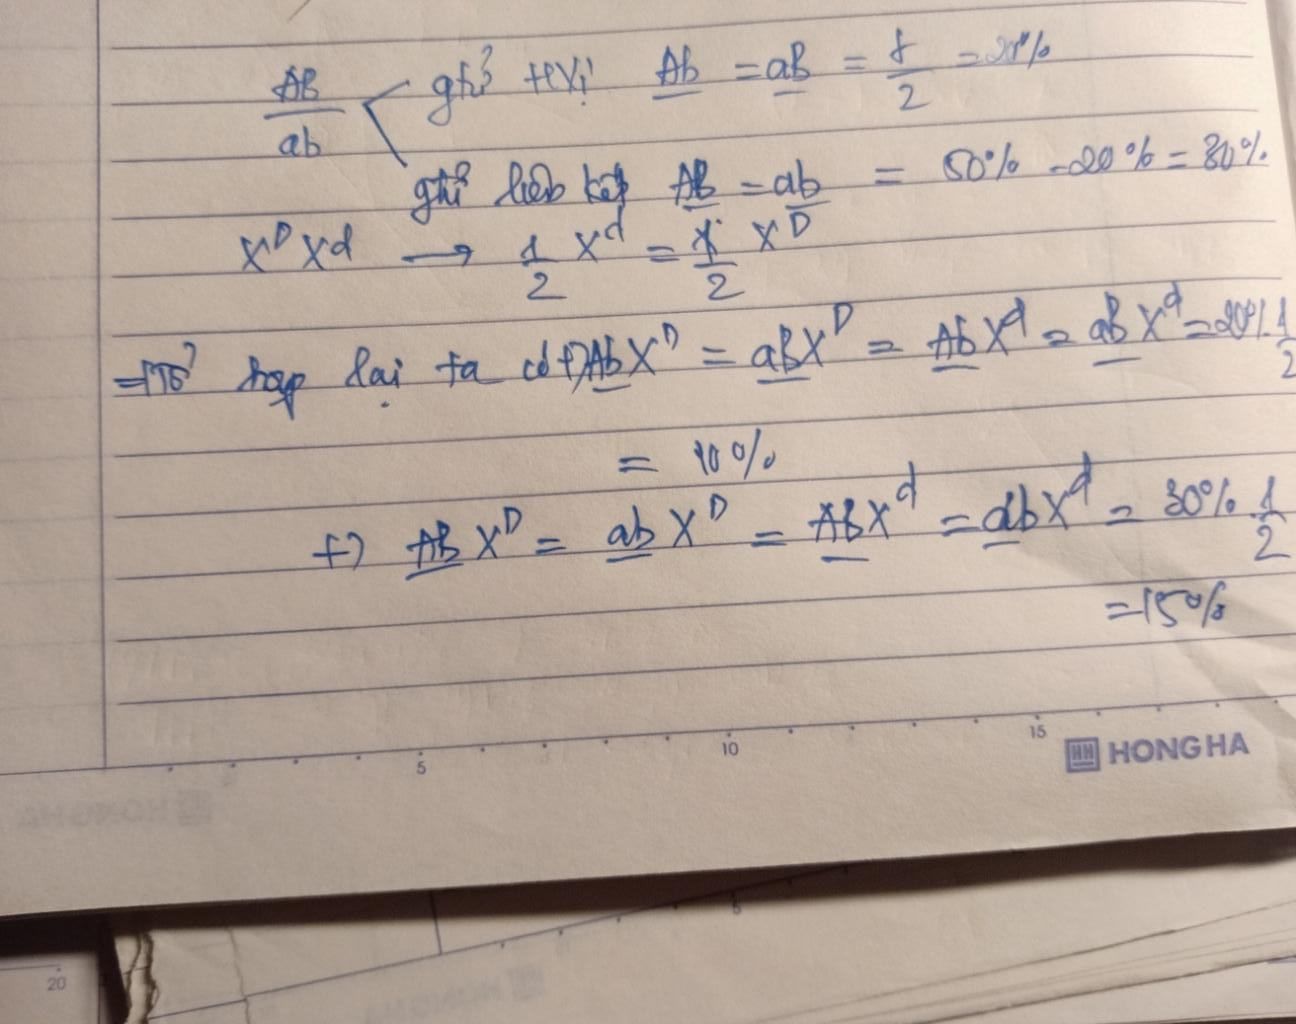 AB/ab gtử HVị Ab = aB = f/2 = 20%
gtử liên kết AB = ab = 50% - 20% = 30%
X^D X^d → 1/2 X^d = 1/2 X^D
=) Tổ hợp lại ta có +) Ab X^D = aB X^D = Ab X^d = aB X^d = 20%.1/2
= 10%
+) AB X^D = ab X^D = AB X^d = ab X^d = 30%.1/2
= 15%
5 10 15
HONG HA
20